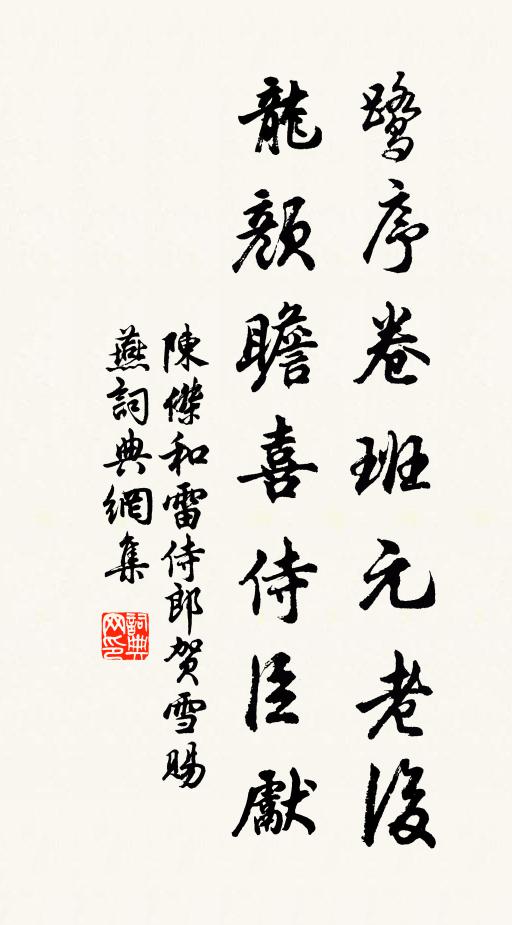 鷺序卷班元老後
龍顏瞻喜侍臣獻
陳傑和雷侍郎賀雪賜
燕詞典網集
詞典
网印